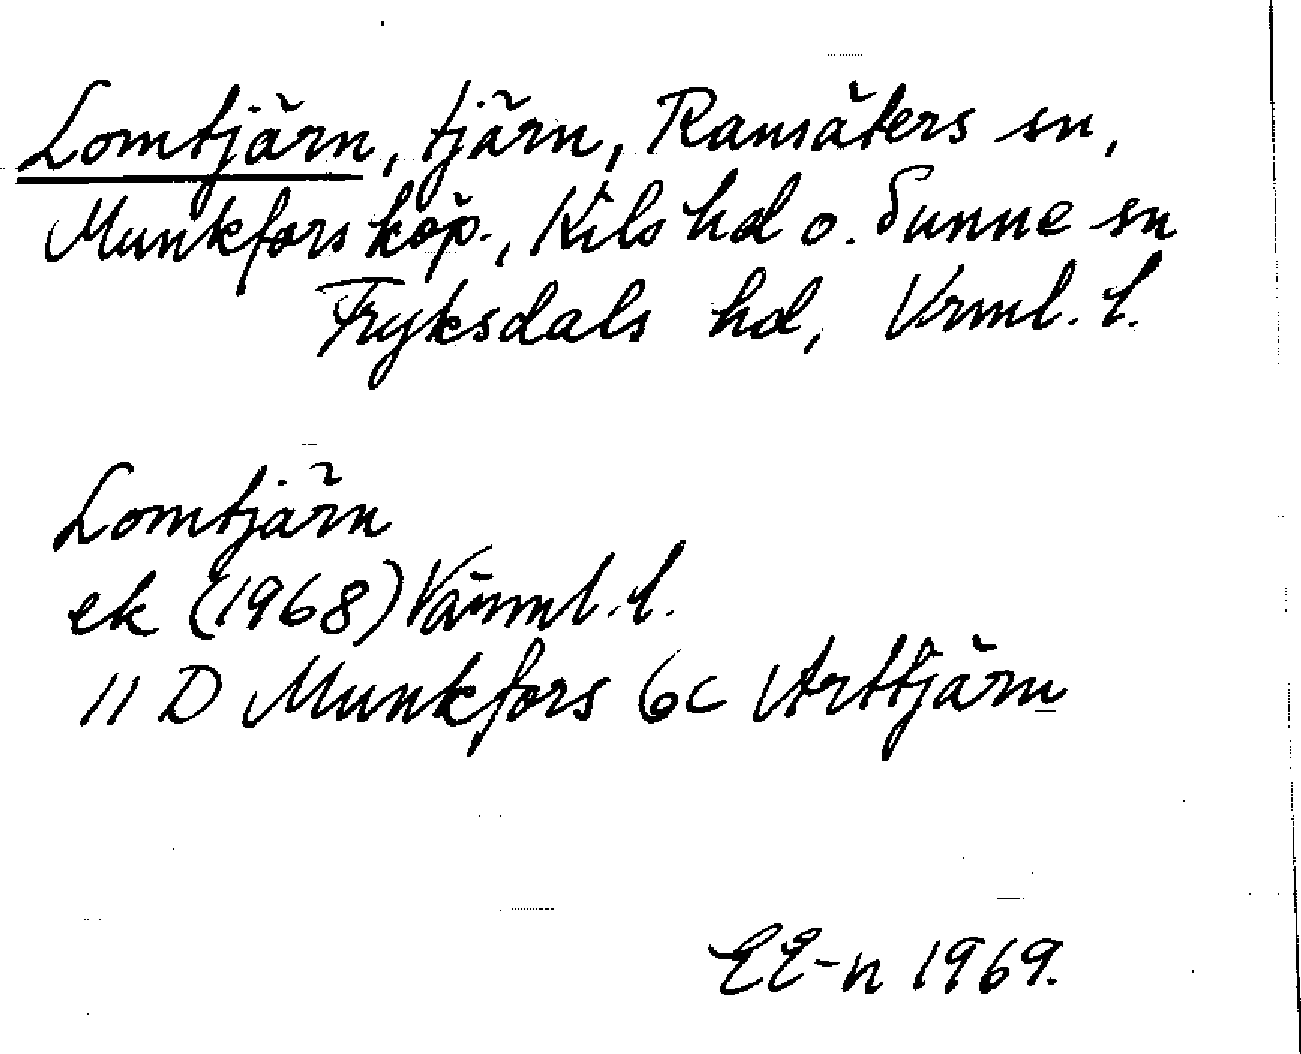 Lomtjärn, tjärn, Ransäters sn,
Munkfors köp., Kils hd o. Sunne sn
Fryksdals hd, Vrml. l.
Lomtjärn
ek (1968) Värml. l.
11 D Munkfors 6c Arttjärn
EE-n 1969.